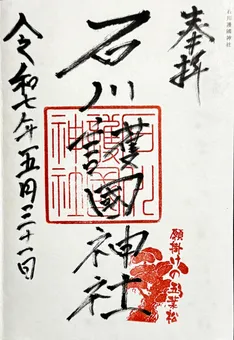 石川護國神社
奉拝
石川護國神社
石川護國神社
願掛けの
令和七年五月三十一日